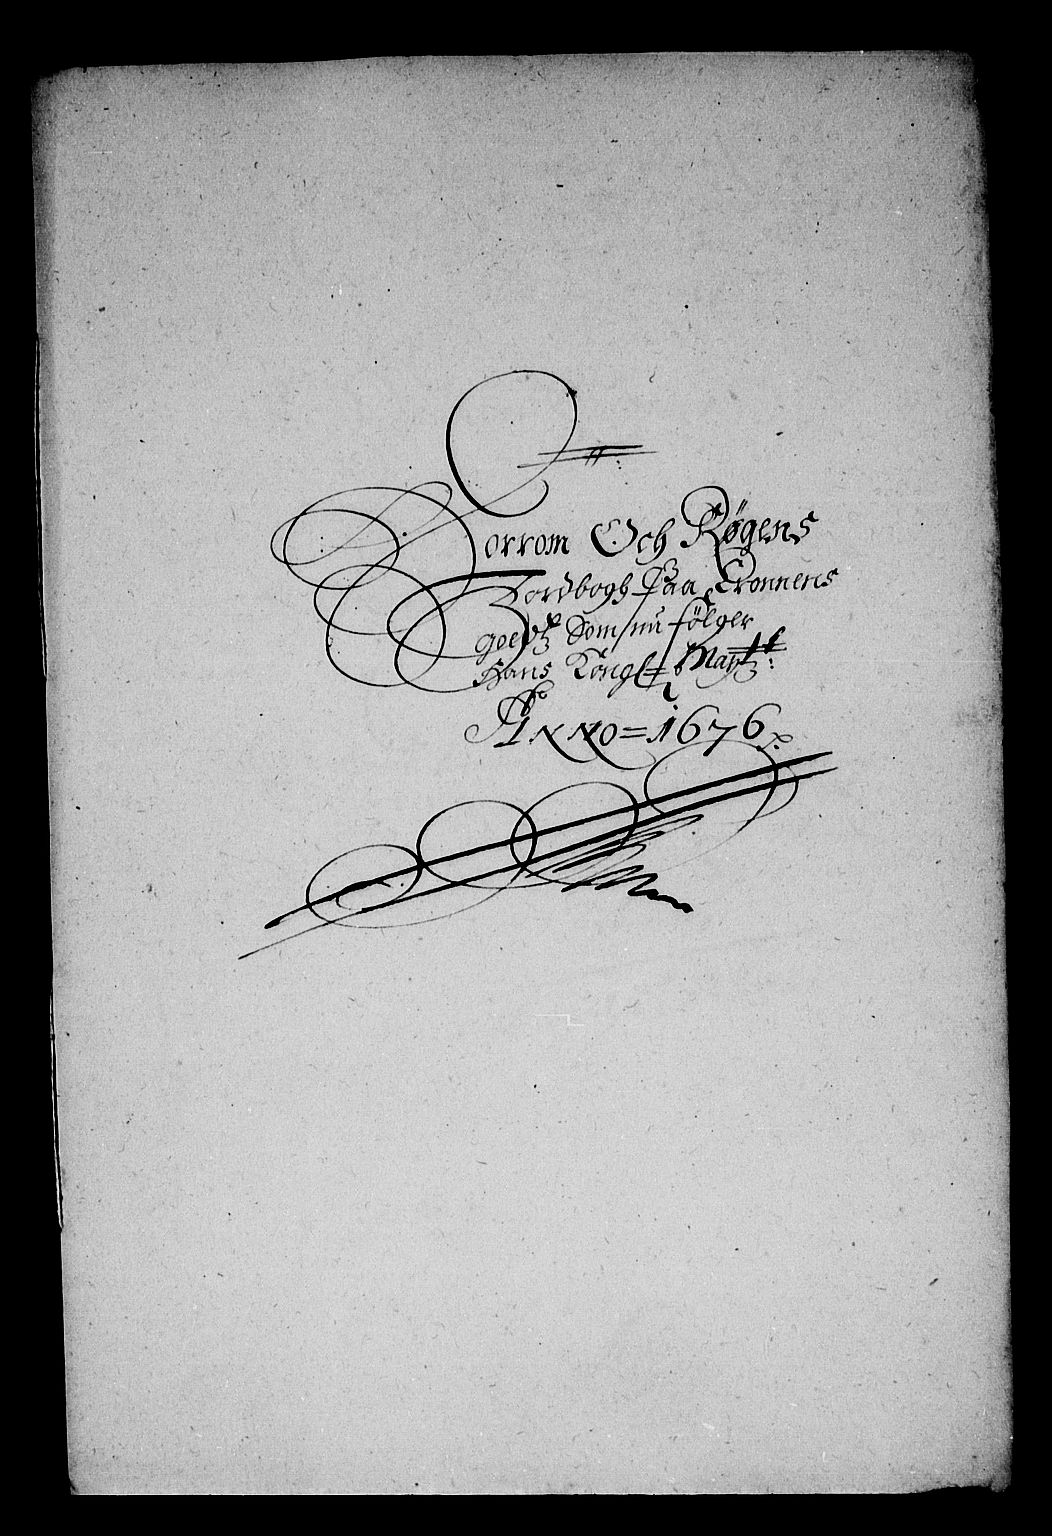 Horrom Och Røgens
Jordbogh Paa Cronnens
goedtz Som nu følger
Hans Kongl: Maytz:
Anno = 1676